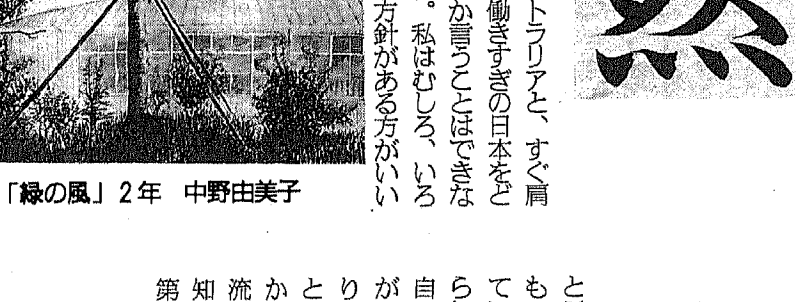 トラリアと、すぐ肩
働きすぎの日本をど
か言うことはできな
。私はむしろ、いろ
方針がある方がいい
「緑の風」2年 中野由美子
と
も
て
ら
自
が
り
と
か
流
知
第